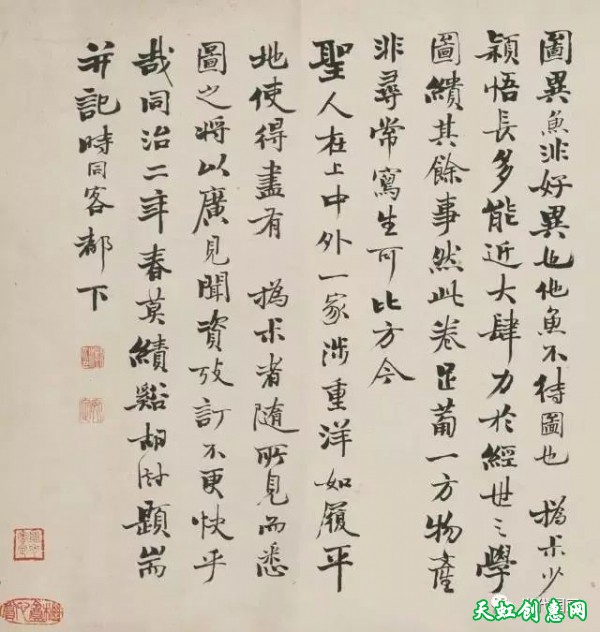 圖異魚非好異也他魚不待圖也 撝尗少
穎悟長多能近大肆力於經世之學
圖繢其餘事然此卷足葡一方物產
非尋常寫生可比方今
聖人在上中外一家涉重洋如履平
地使得盡有 撝尗者隨所見而悉
圖之将以廣見聞資攷訂不更快乎
哉同治二年春莫績谿胡澍題耑
并記時同客都下
天虹创惠网